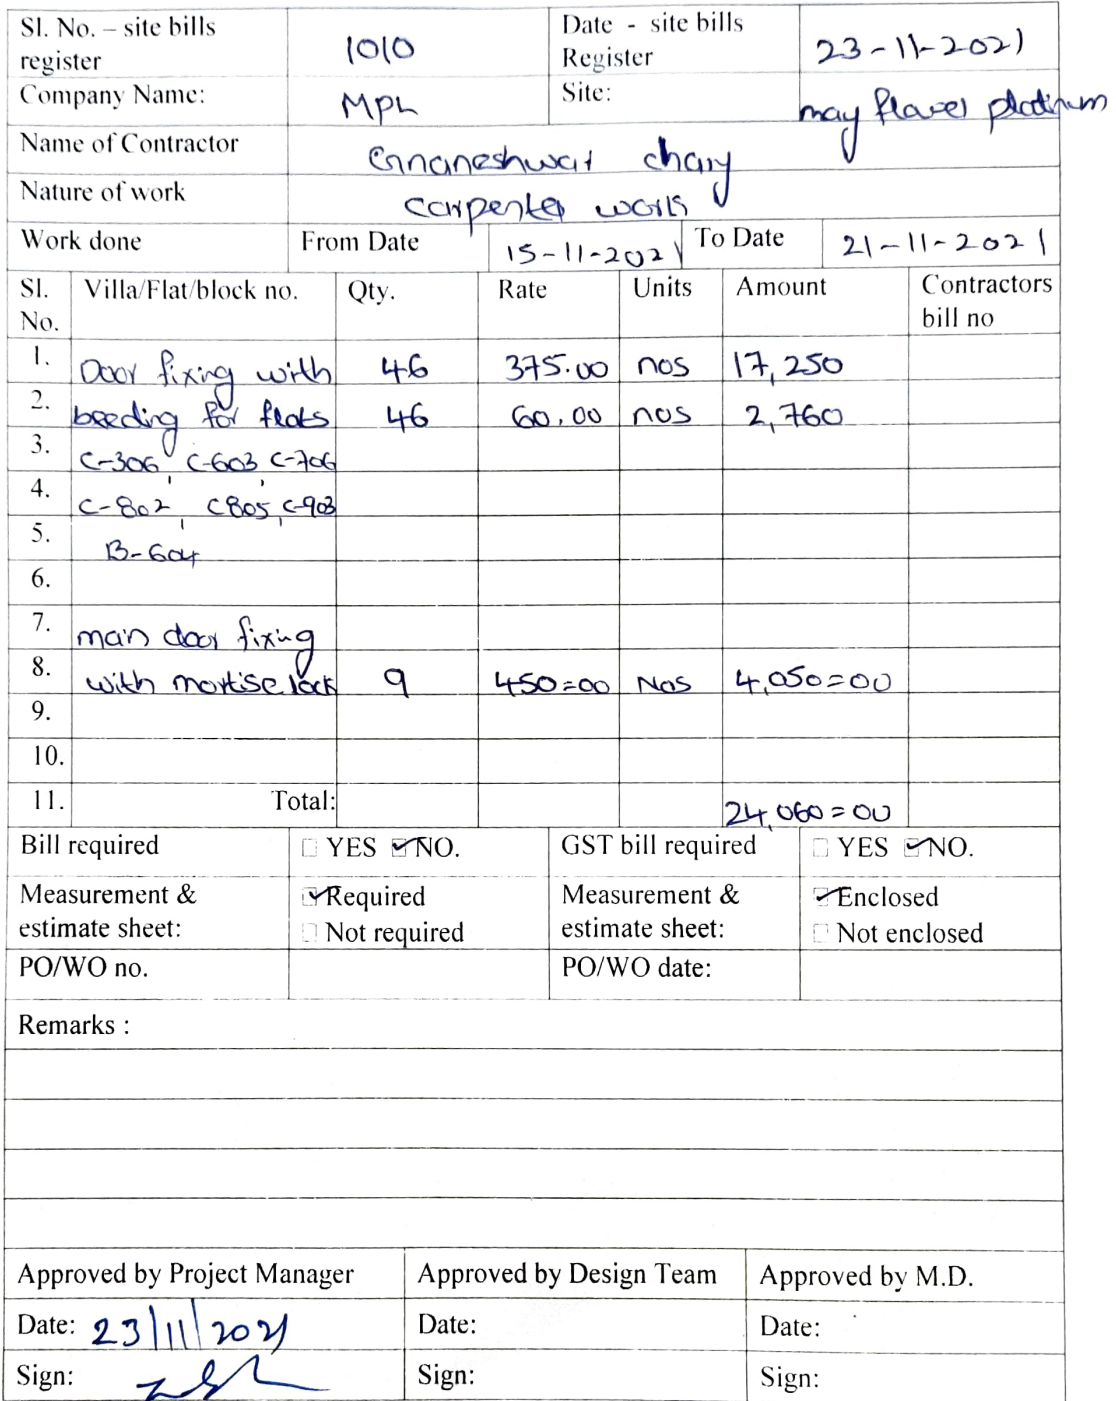 Sl. No. – site bills register 1010 Date - site bills Register 23-11-2021
Company Name: MPL Site: may flower platinum
Name of Contractor Gnaneshwar chary
Nature of work carpenter work
Work done From Date 15-11-2021 To Date 21-11-2021
Sl. No. Villa/Flat/block no. Qty. Rate Units Amount Contractors bill no
1. Door fixing with 46 375.00 nos 17,250
2. beeding for flats 46 60.00 nos 2,760
3. C-306, C-603, C-706
4. C-802, C805, C-903
5. B-604
6.
7. main door fixing
8. with mortise lock 9 450=00 Nos 4,050=00
9.
10.
11. Total: 24,060=00
Bill required YES NO. GST bill required YES NO.
Measurement & estimate sheet: Required Not required Measurement & estimate sheet: Enclosed Not enclosed
PO/WO no. PO/WO date:
Remarks :
Approved by Project Manager Approved by Design Team Approved by M.D.
Date: 23/11/2021 Date: Date:
Sign: Sign: Sign: